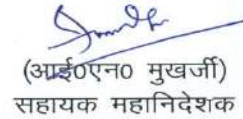 (आई०एन० मुखर्जी)
सहायक महानिदेशक